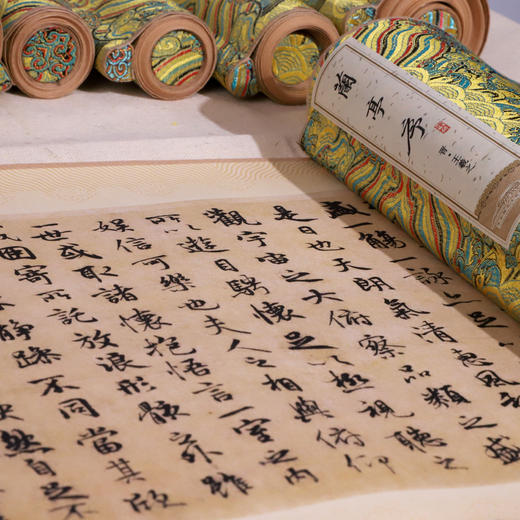 蘭亭序
晉·王羲之
盛一觴一詠亦足
是日也天朗氣清惠風和
觀宇宙之大俯察品類之盛
所以遊目騁懷足以極視聽之
娛信可樂也夫人之相與俯仰
一世或取諸懷抱悟言一室之內
因寄所託放浪形骸之外雖
靜躁不同當其欣
快然自足不